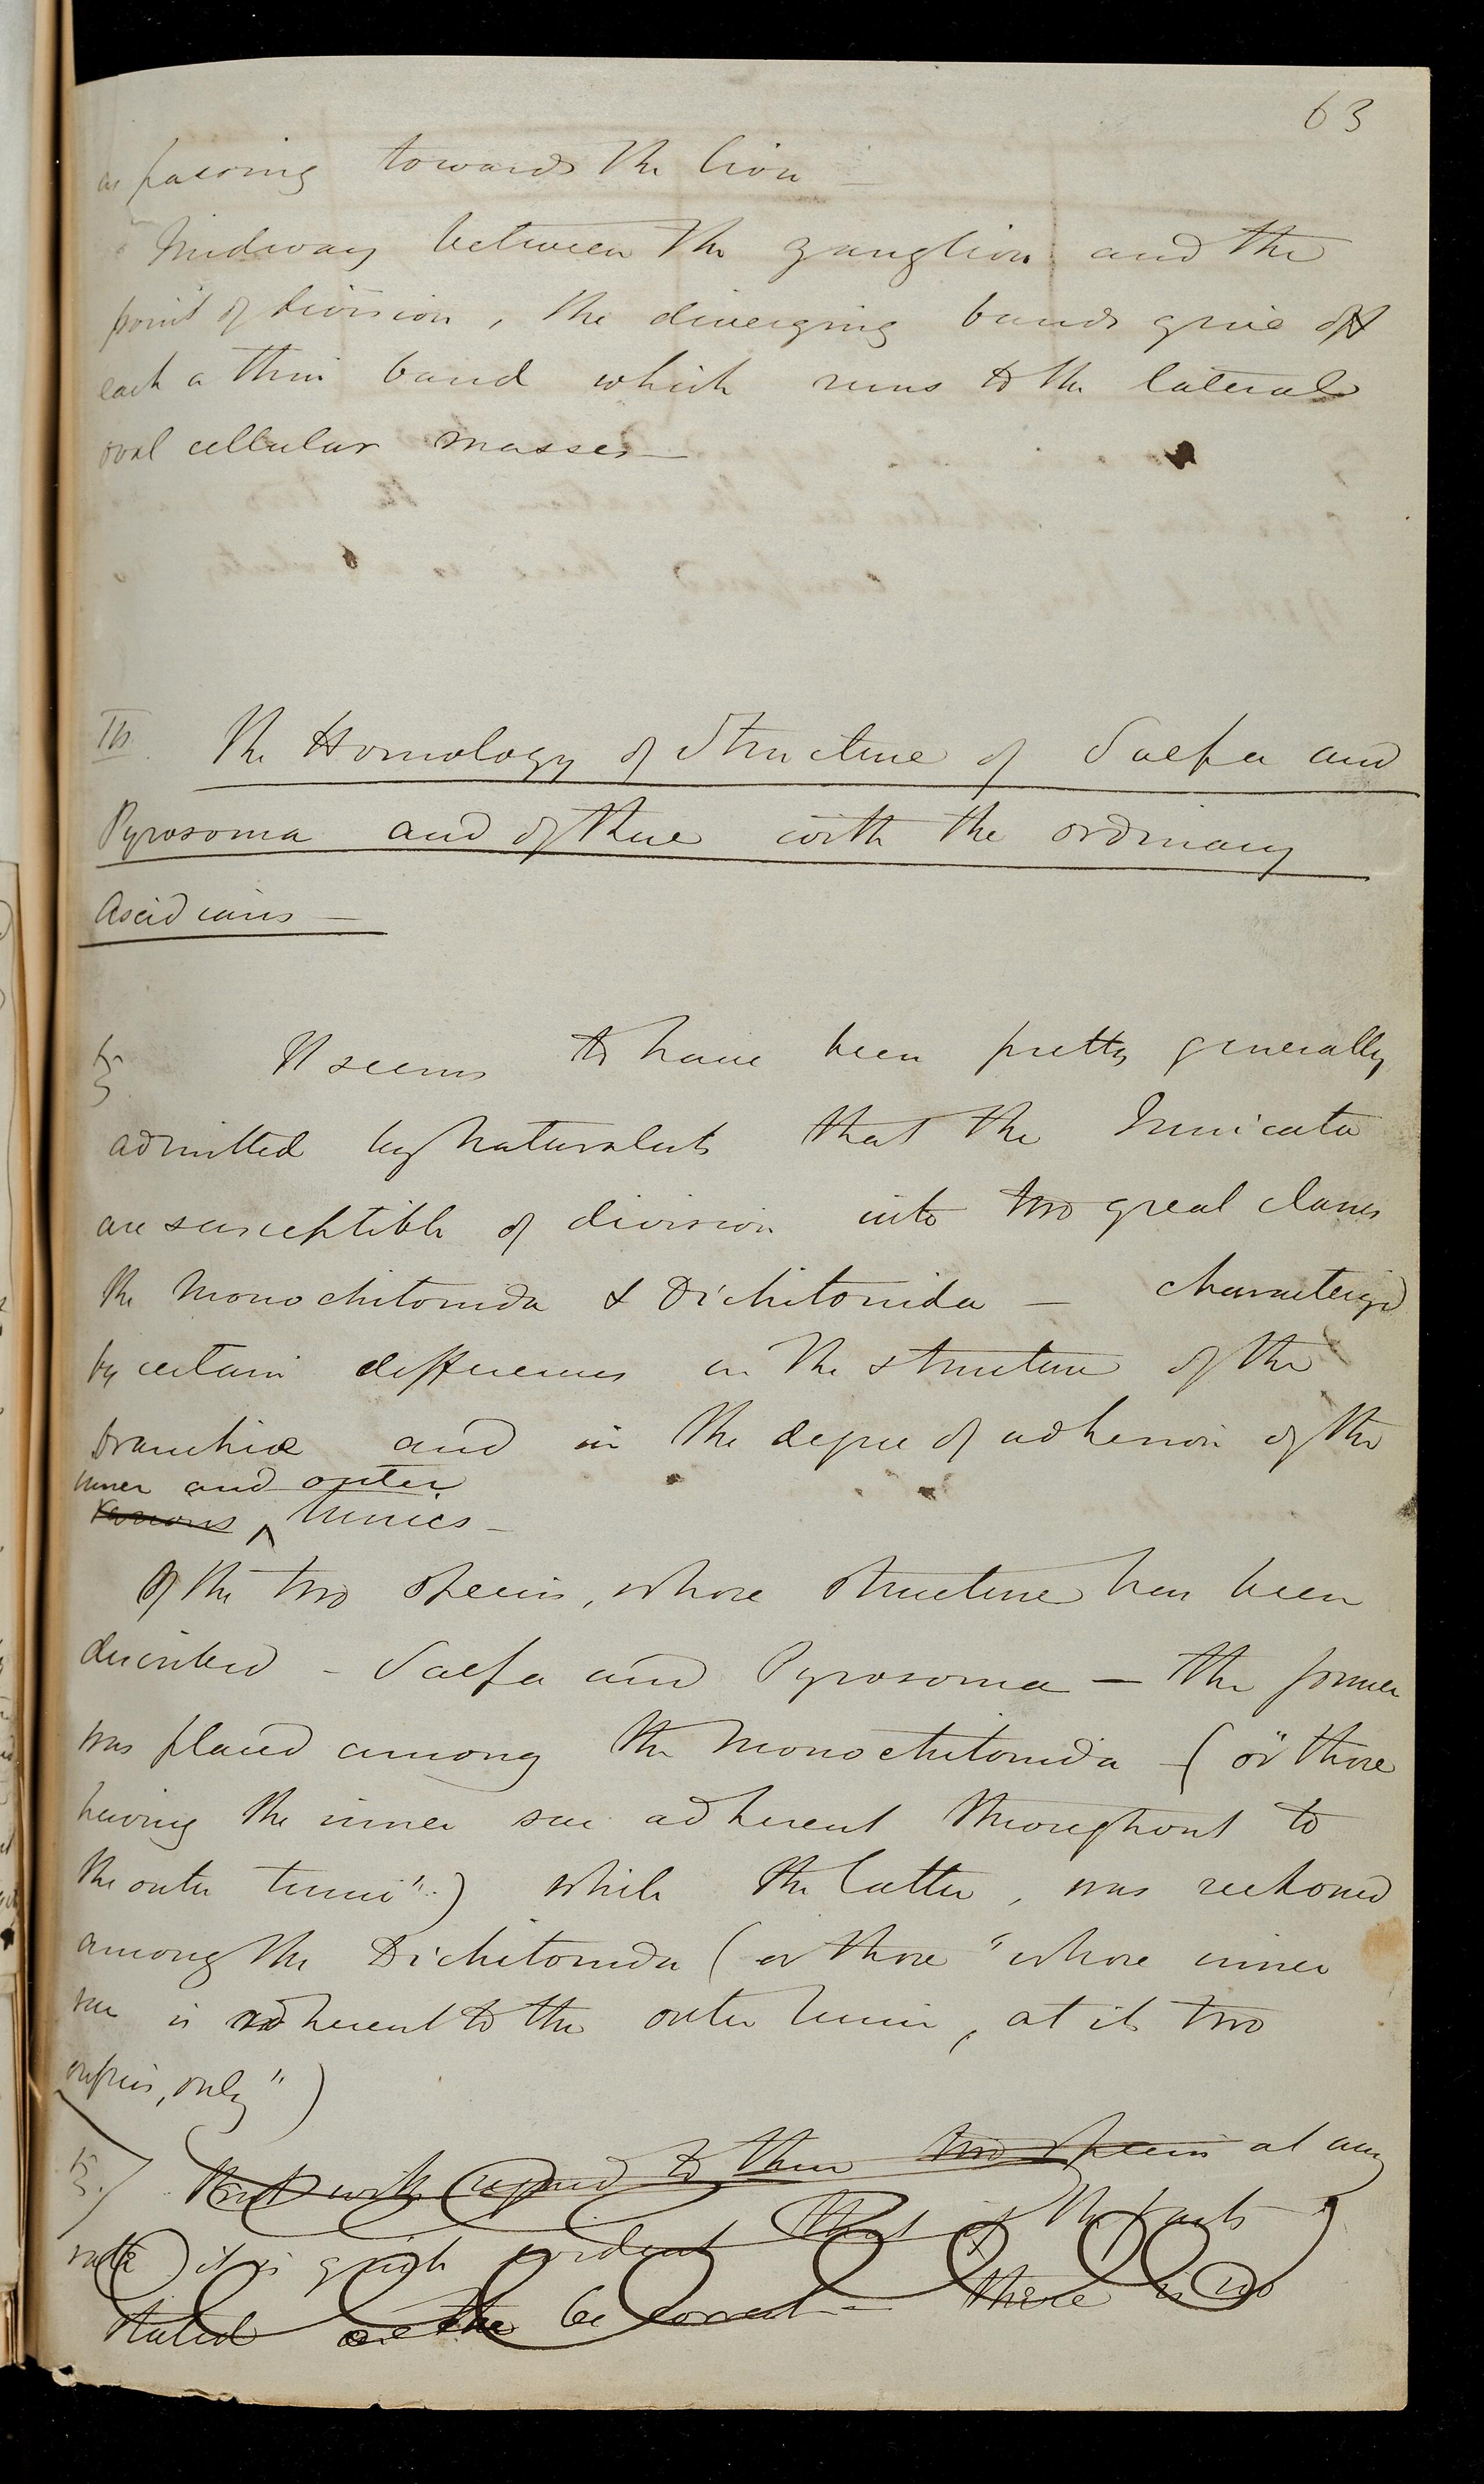 63
as passing towards the
Midway between the ganglion and the
point of division, the diverging bands give off
each a thin band which runs to the lateral
oval cellular masses —
The Homology of Structure of Salpa and
Pyrosoma and of these with the ordinary
Ascidians —
It seems to have been pretty generally
admitted by Naturalists that the Tunicata
are susceptible of division into two great classes
the Monochitonida & Dichitonida — characterized
by certain differences in the structure of the
branchiæ and in the degree of adhesion of the
inner and outer
various ^ tunics —
Of the two species, whose structure has been
described – Salpa and Pyrosoma — the former
was placed among the Monochitonida – (or "those
having the inner sac adherent throughout to
the outer tunic") while the latter, was reckoned
among the Dichitonida (or those "whose inner
sac is adherent to the outer tunic, at its two
orifices, only")
But with regard to these two species at any
rate) it is quite evident that if the facts
stated be correct – there is no